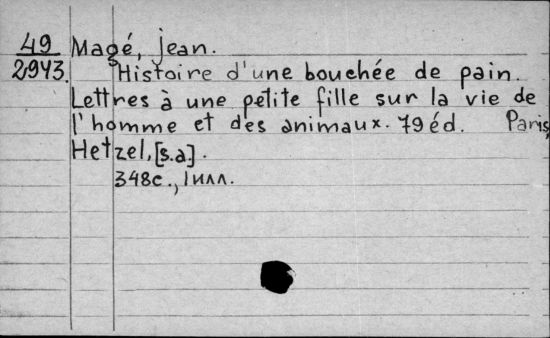 49 Magé, jean.
2943 Histoire d'une bouchée de pain.
Lettres à une petite fille sur la vie de
l'homme et des animaux. 79 éd. Paris,
Hetzel, [s.a].
348с., 1 илл.